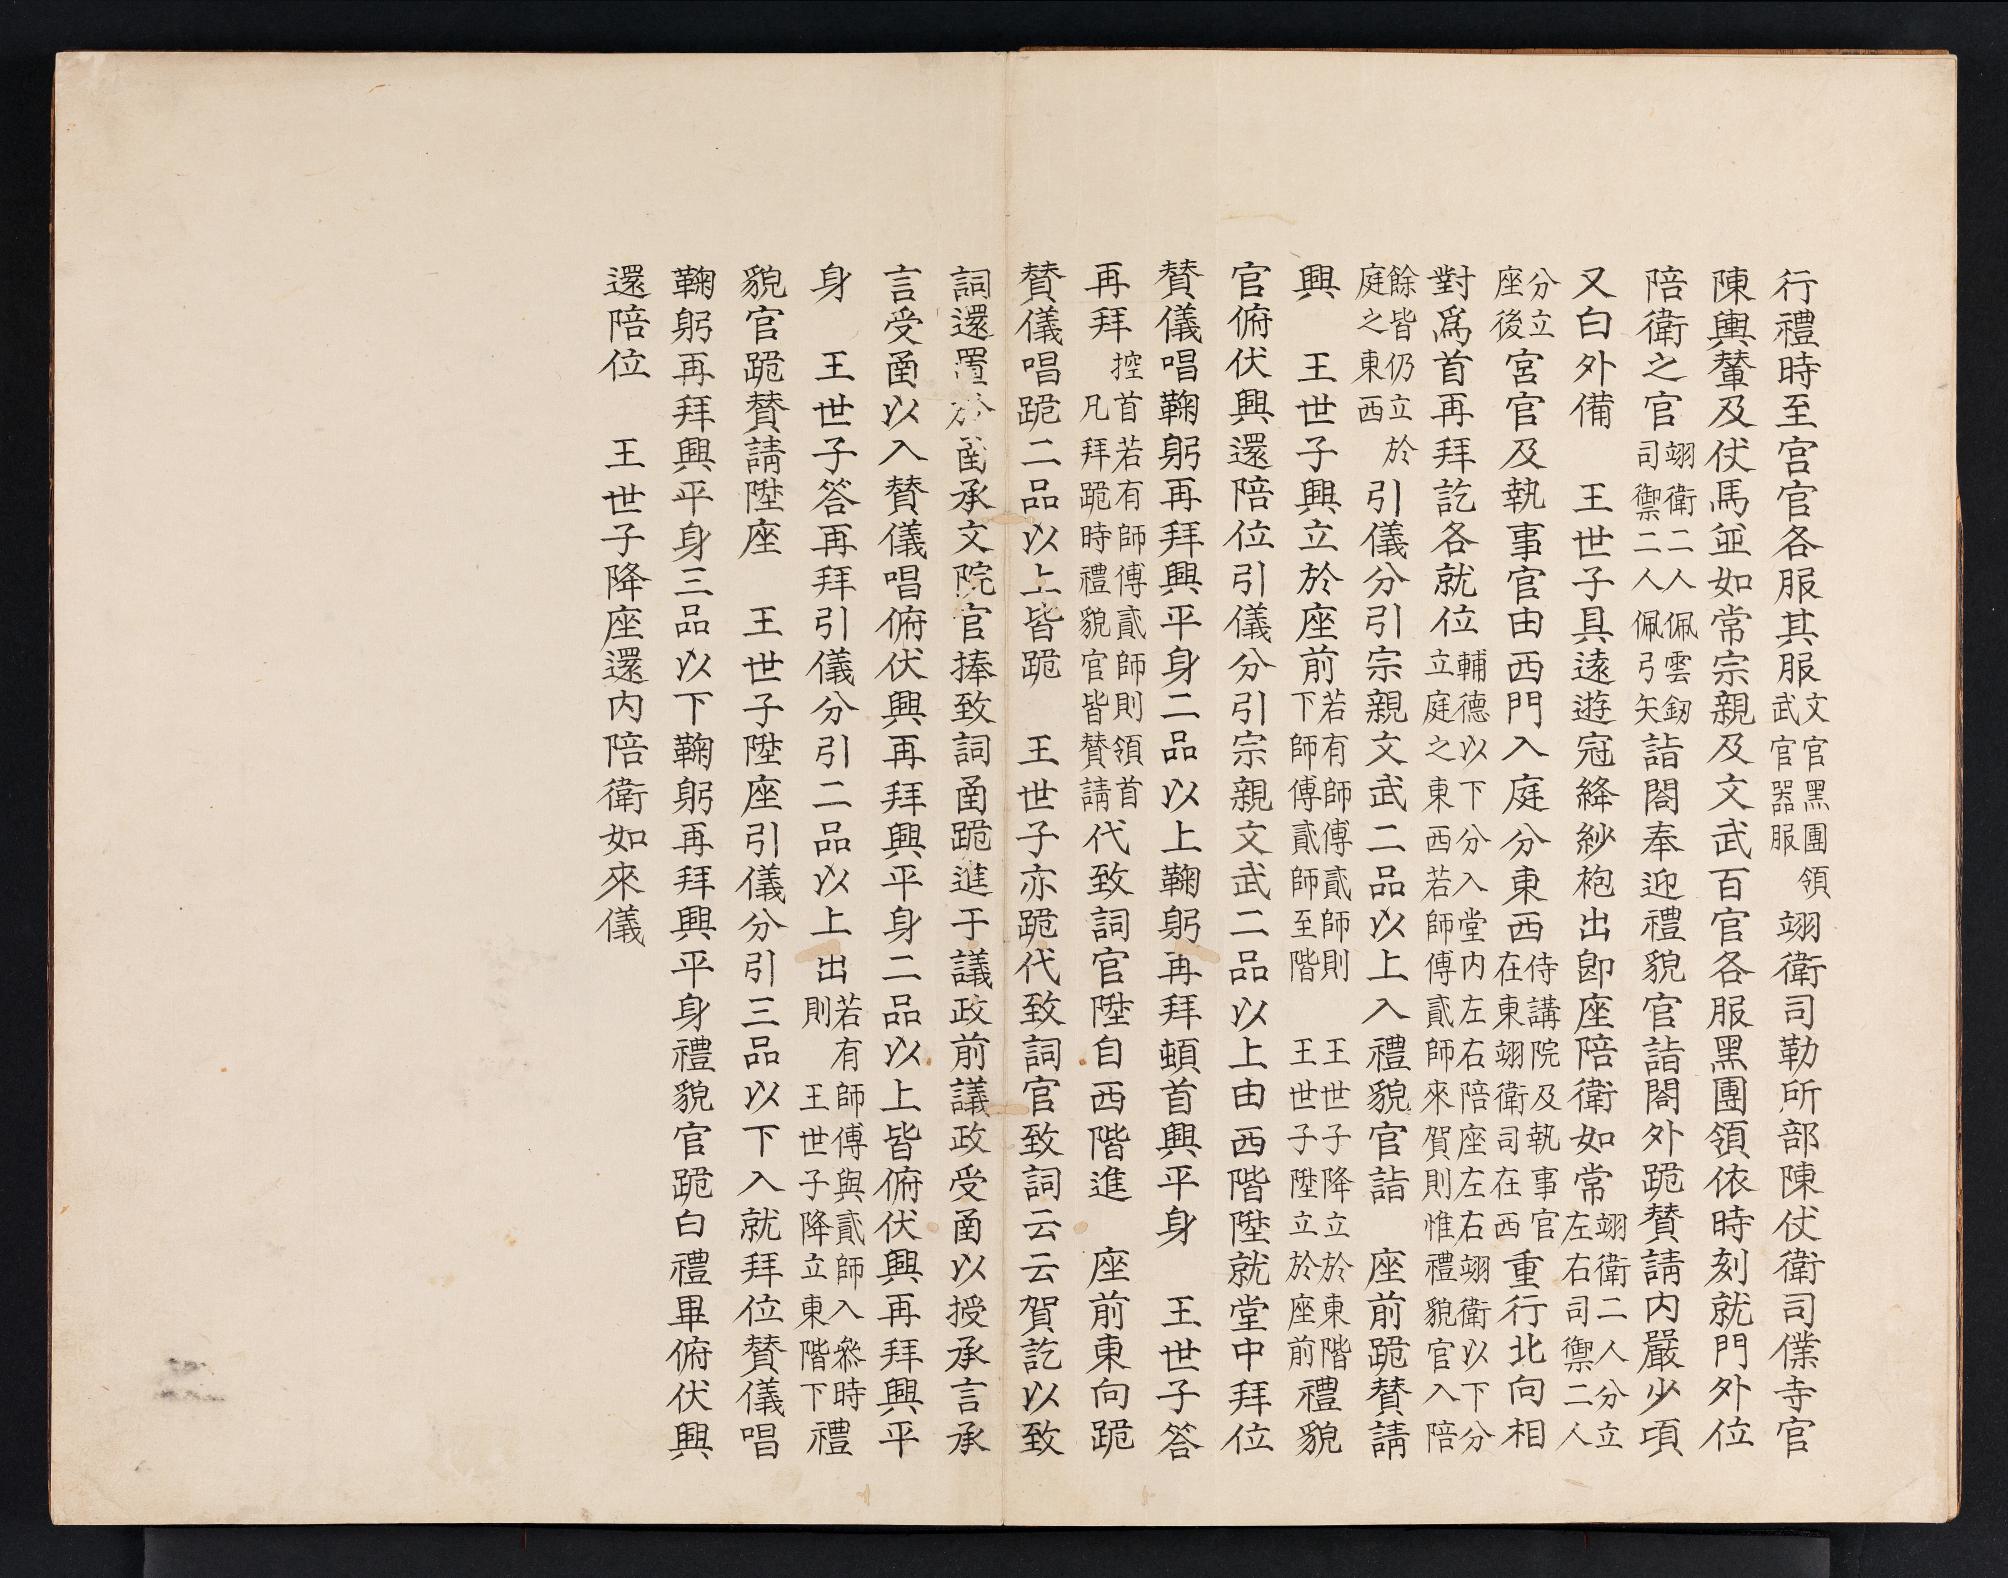 行禮時至宮官各服其服文官黑團領武官器服翊衛司勒所部陳仗衛司僕寺官
陳輿輦及仗馬並如常宗親及文武百官各服黑團領依時刻就門外位
陪衛之官翊衛二人佩雲釰司禦二人佩弓矢詣閤奉迎禮貌官詣閤外跪贊請內嚴少頃
又白外備　王世子具遠遊冠絳紗袍出卽座陪衛如常翊衛二人分立左右司禦二人
分立座後宮官及執事官由西門入庭分東西侍講院及執事官在東翊衛司在西重行北向相
對爲首再拜訖各就位輔德以下分入堂內左右陪座左右翊衛以下分立庭之東西若師傅貳師來賀則惟禮貌官入陪
餘皆仍立於庭之東西引儀分引宗親文武二品以上入禮貌官詣　座前跪贊請
興　王世子興立於座前若有師傅貳師則　王世子降立於東階下師傅貳師至階　王世子陞立於座前禮貌
官俯伏興還陪位引儀分引宗親文武二品以上由西階陞就堂中拜位
贊儀唱鞠躬再拜興平身二品以上鞠躬再拜頓首興平身　王世子答
再拜控首若有師傅貳師則頓首凡拜跪時禮貌官皆贊請代致詞官陞自西階進　座前東向跪
贊儀唱跪二品以上皆跪　王世子亦跪代致詞官致詞云云賀訖以致
詞還置於凾承文院官捧致詞凾跪進于議政前議政受凾以授承言承
言受凾以入贊儀唱俯伏興再拜興平身二品以上皆俯伏興再拜興平
身　王世子答再拜引儀分引二品以上出若有師傅與貳師入參時則　王世子降立東階下禮
貌官跪贊請陞座　王世子陞座引儀分引三品以下入就拜位贊儀唱
鞠躬再拜興平身三品以下鞠躬再拜興平身禮貌官跪白禮畢俯伏興
還陪位　王世子降座還內陪衛如來儀